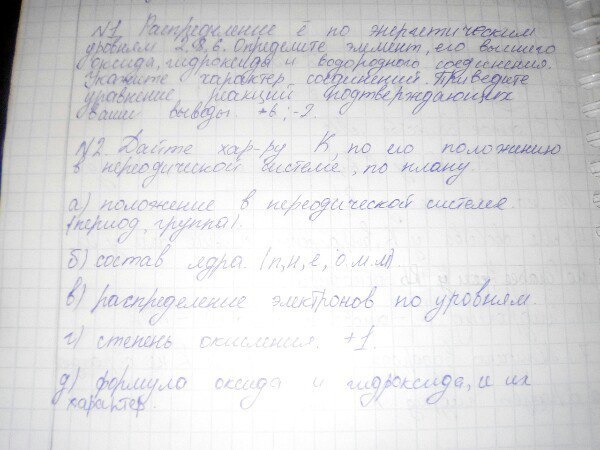 N1 Распределение ē по энергетическим
уровням 2.8.6. Определите элемент, его высшего
оксида, гидроксида и водородного соединения.
Укажите характер соединений. Приведите
уравнение реакций подтверждающих
ваши выводы. +6; -2.
N2. Дайте хар-ру К, по его положению
в переодической системе, по плану
а) положение в переодической системе
(период, группа).
б) состав ядра (п, н, е, о.м.м)
в) распределение электронов по уровням.
г) степень окисления. +1.
д) формула оксида и гидроксида, и их
характер.